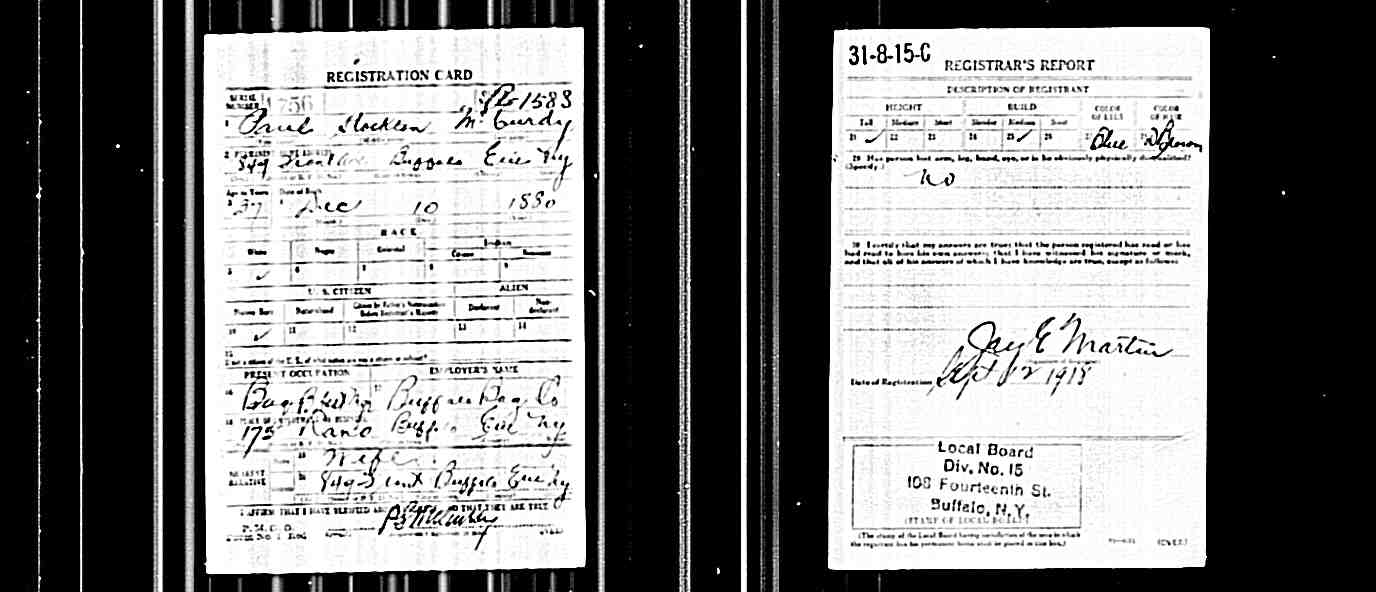 REGISTRATION CARD
SERIAL NUMBER 1756 1583
1 Paul Stockton McCurdy
849 Buffalo Erie NY
Age in Years Date of Birth
37 Dec 10 1880
RACE
White Negro Oriental Indian
Citizen Noncitizen
5 ✓ 6 7 8 9
U. S. CITIZEN ALIEN
Native Born Naturalized Citizen by Father's Naturalization Before Registrant's Majority Declarant Non-declarant
10 ✓ 11 12 13 14
15
If not a citizen of the U. S., of what nation are you a citizen or subject?
PRESENT OCCUPATION EMPLOYER'S NAME
16 Bag 17 Buffalo Bag Co
175 Rano Buffalo Erie NY
NEAREST RELATIVE 19 Wife
20 849 Buffalo Erie NY
I AFFIRM THAT I HAVE VERIFIED AND THAT THEY ARE TRUE
P. M. G. O.
Form No. 1 Red
(OVER)
31-8-15-C
REGISTRAR'S REPORT
DESCRIPTION OF REGISTRANT
HEIGHT BUILD COLOR OF EYES COLOR OF HAIR
Tall Medium Short Slender Medium Stout
21 ✓ 22 23 24 25 ✓ 26 27 Blue 28 D Brown
29 Has person lost arm, leg, hand, eye, or is he obviously physically disqualified?
(Specify.)
No
30 I certify that my answers are true; that the person registered has read or has
had read to him his own answers; that I have witnessed his signature or mark,
and that all of his answers of which I have knowledge are true, except as follows:
Jay E Martin
Date of Registration Sept 12 1918
Local Board
Div. No. 15
108 Fourteenth St.
Buffalo, N. Y.
(STAMP OF LOCAL BOARD)
(The stamp of the Local Board having jurisdiction of the area in which
the registrant has his permanent home shall be placed in this box.)
(OVER)